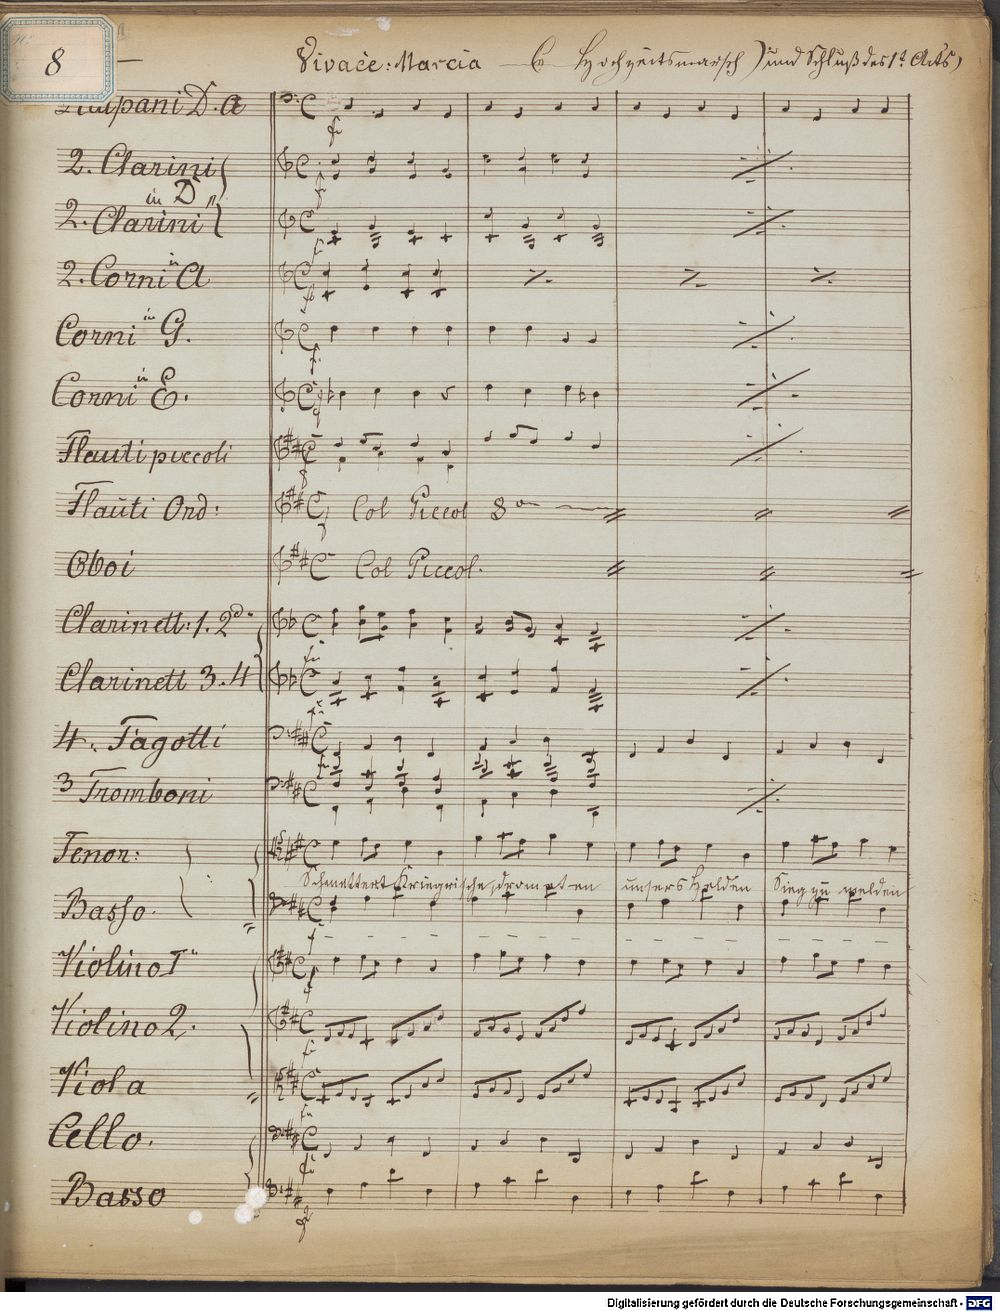 8
Vivace: Marcia — (Hochzeitsmarsch) und Schluß des 1t. Acts)
Timpani D. a
2. Clarini
in D
2. Clarini
2. Corni in A
Corni in G.
Corni in E.
Flauti piccoli
Flauti Ord: Col Piccol 8
Oboi Col Piccol.
Clarinett: 1. 2d.
Clarinett 3. 4
4. Fagotti
3 Tromboni
Tenor:
Schmettert Kriegrische, dromet en unsers Helden Sieg zu melden
Basso.
Violino I
Violino 2.
Viola
Cello.
Basso
Digitalisierung gefördert durch die Deutsche Forschungsgemeinschaft - DFG